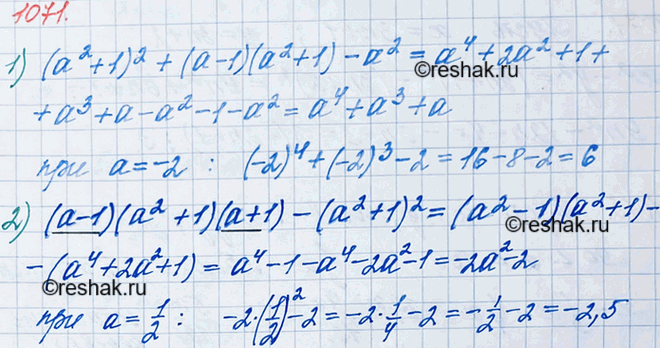 1071.
1) (a²+1)² + (a-1)(a²+1) - a² = a⁴ + 2a² + 1 +
©reshak.ru
+ a³ + a - a² - 1 - a² = a⁴ + a³ + a
при a = -2 : (-2)⁴ + (-2)³ - 2 = 16 - 8 - 2 = 6
2) (a-1)(a²+1)(a+1) - (a²+1)² = (a²-1)(a²+1) -
©reshak.ru
- (a⁴+2a²+1) = a⁴ - 1 - a⁴ - 2a² - 1 = -2a² - 2
©reshak.ru
при a = 1/2 : -2·(1/2)² - 2 = -2·1/4 - 2 = -1/2 - 2 = -2,5